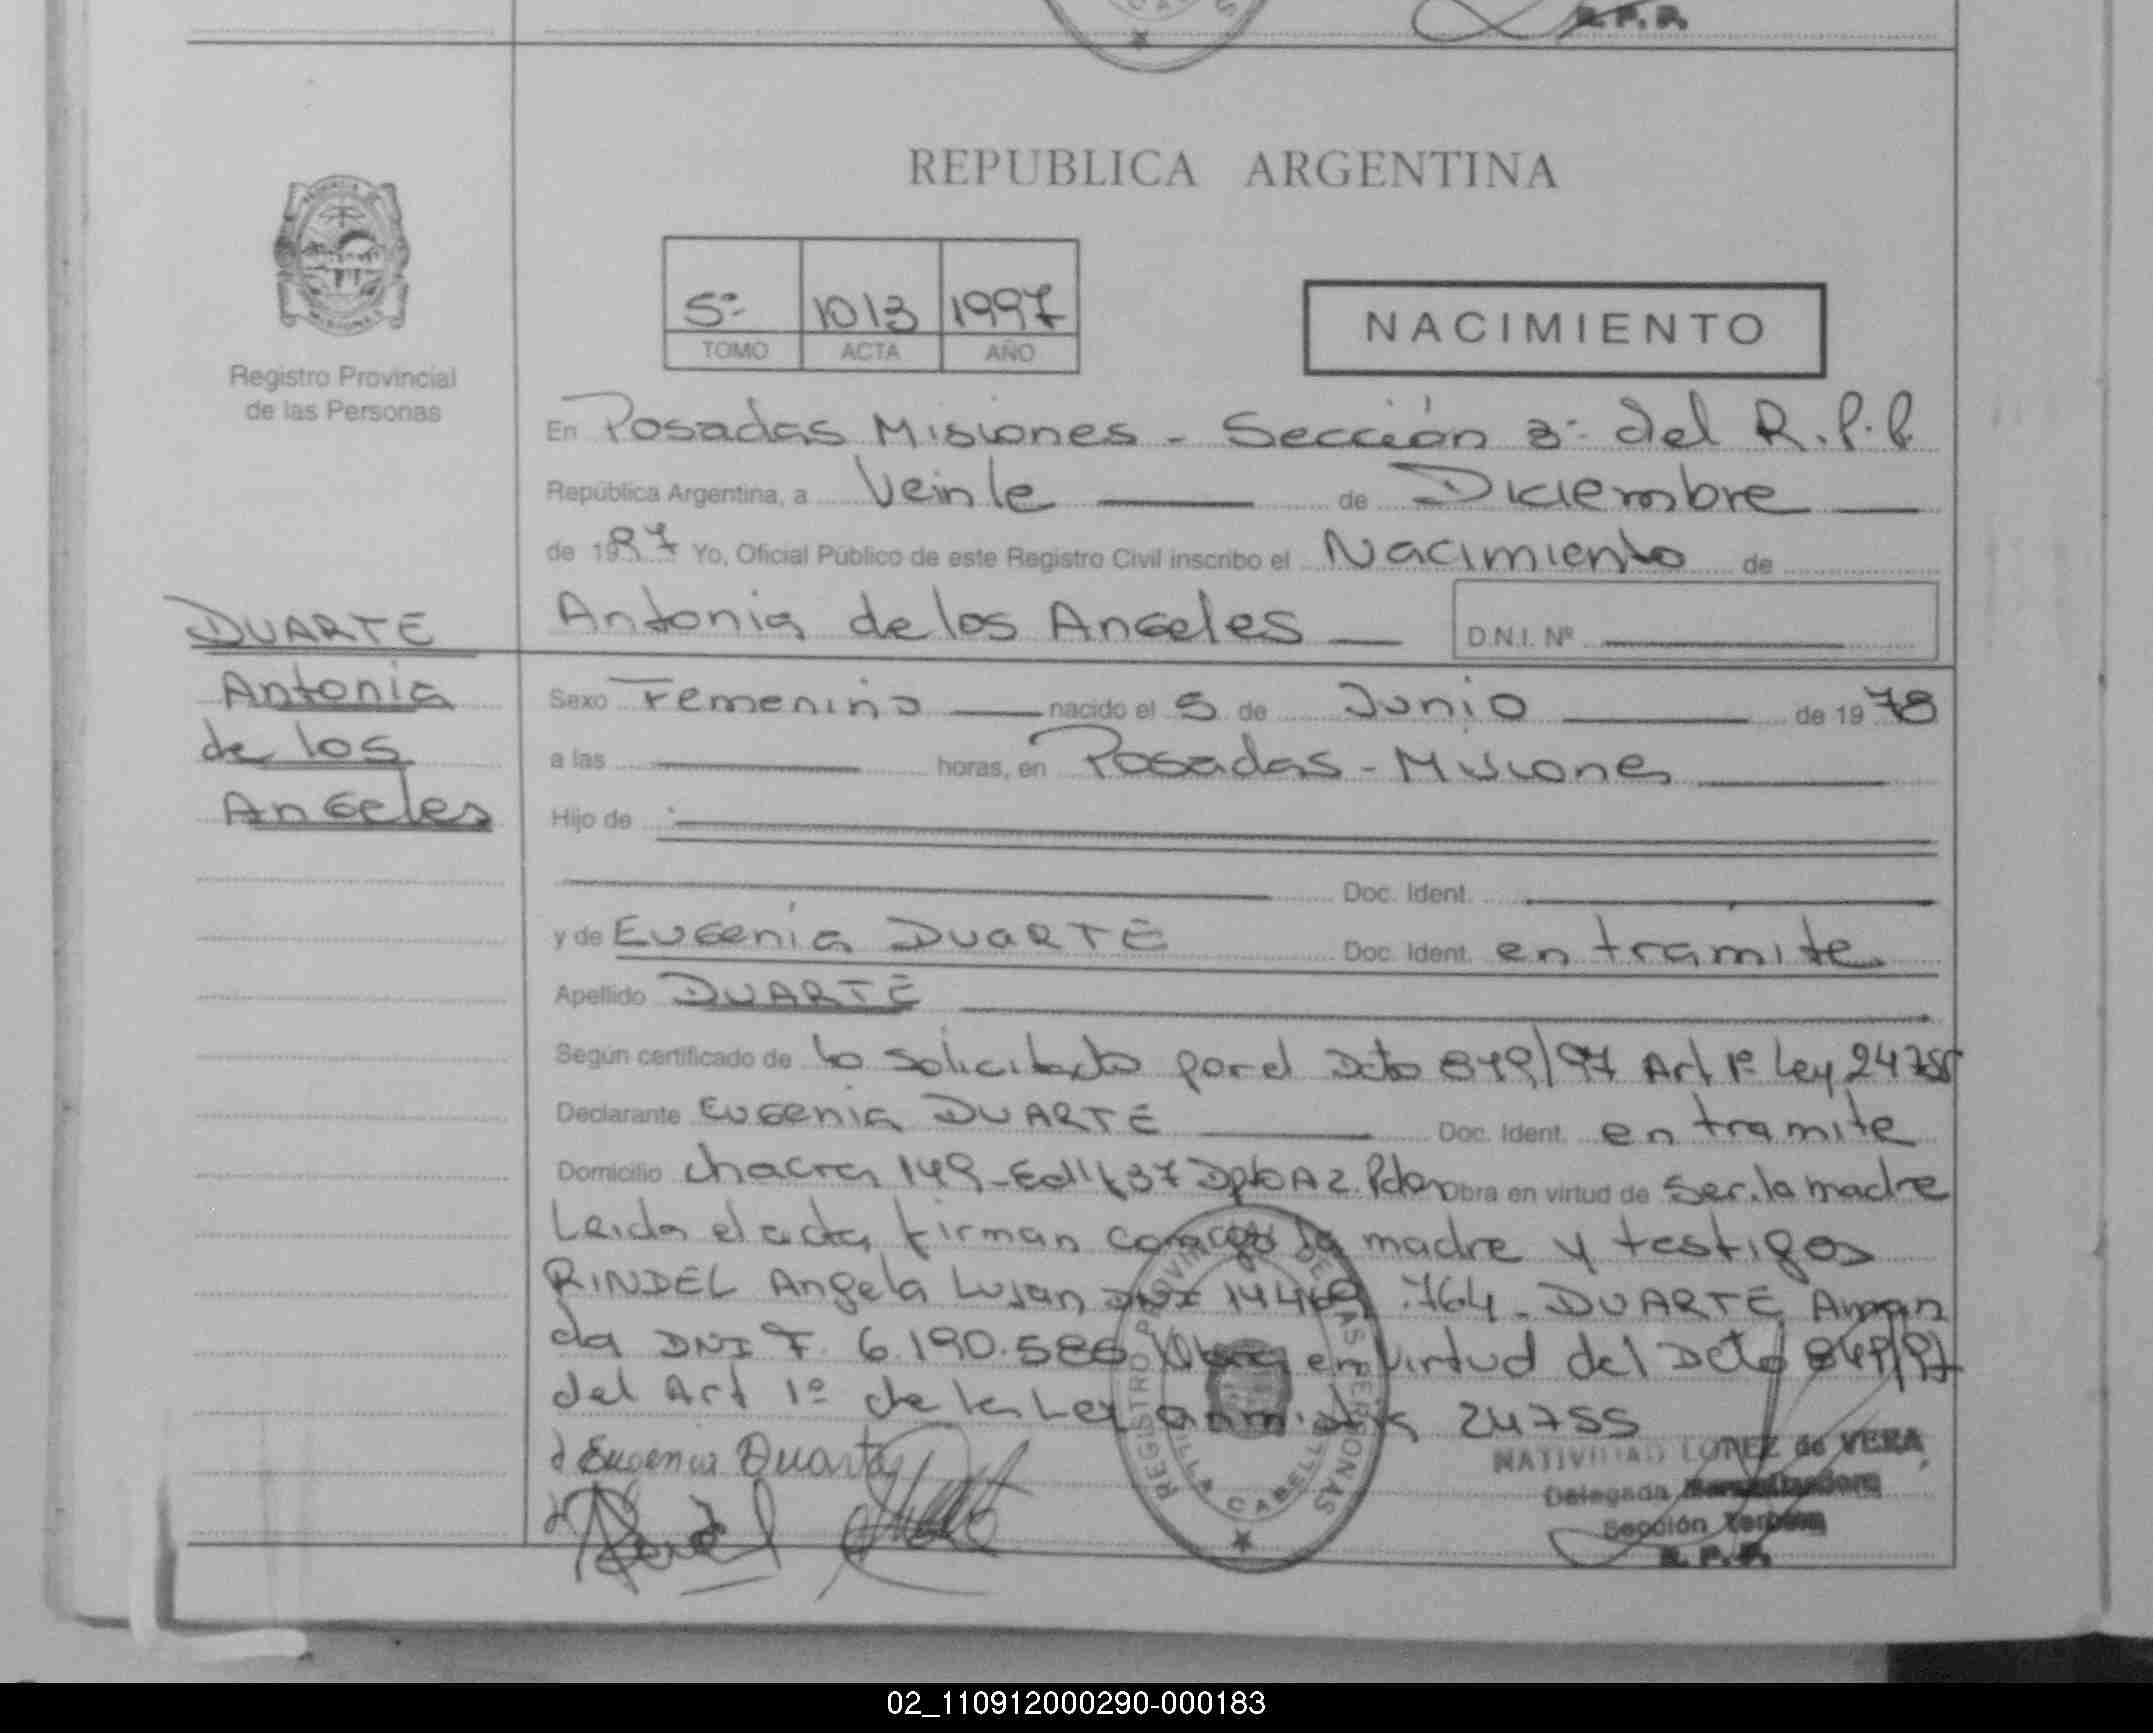 R. P. P.
REPUBLICA ARGENTINA
5º 1013 1997
TOMO ACTA AÑO
NACIMIENTO
Registro Provincial
de las Personas
En Posadas Misiones - Sección 3º del R.P.P.
República Argentina, a Veinte de Diciembre
de 1997 Yo, Oficial Público de este Registro Civil inscribo el Nacimiento de
Antonia de los Angeles D.N.I. Nº
DUARTE
Antonia
de los
Angeles
Sexo Femenino nacido el 5 de Junio de 1978
a las horas, en Posadas - Misiones
Hijo de
Doc. Ident.
y de Eugenia DUARTE Doc. Ident. en tramite
Apellido DUARTE
Según certificado de lo solicitado por el Dcto 849/97 Art 1º Ley 24755
Declarante Eugenia DUARTE Doc. Ident. en tramite
Domicilio chacra 149 - Edif 37 Dpto A2. Pdas Obra en virtud de ser la madre
Leida el acta, firman conmigo la madre y testigos
RINDEL Angela Lujan DNI 14469.764 - DUARTE Aman
da DNI F 6.190.586 Obra en virtud del Dcto 849/97
del Art 1º de la Ley 24755
Eugenia Duarte
REGISTRO PROVINCIAL DE LAS PERSONAS
VILLA CABELLO
NATIVIDAD LOPEZ de VERA
Delegada
Sección
R. P. P.
02_110912000290-000183